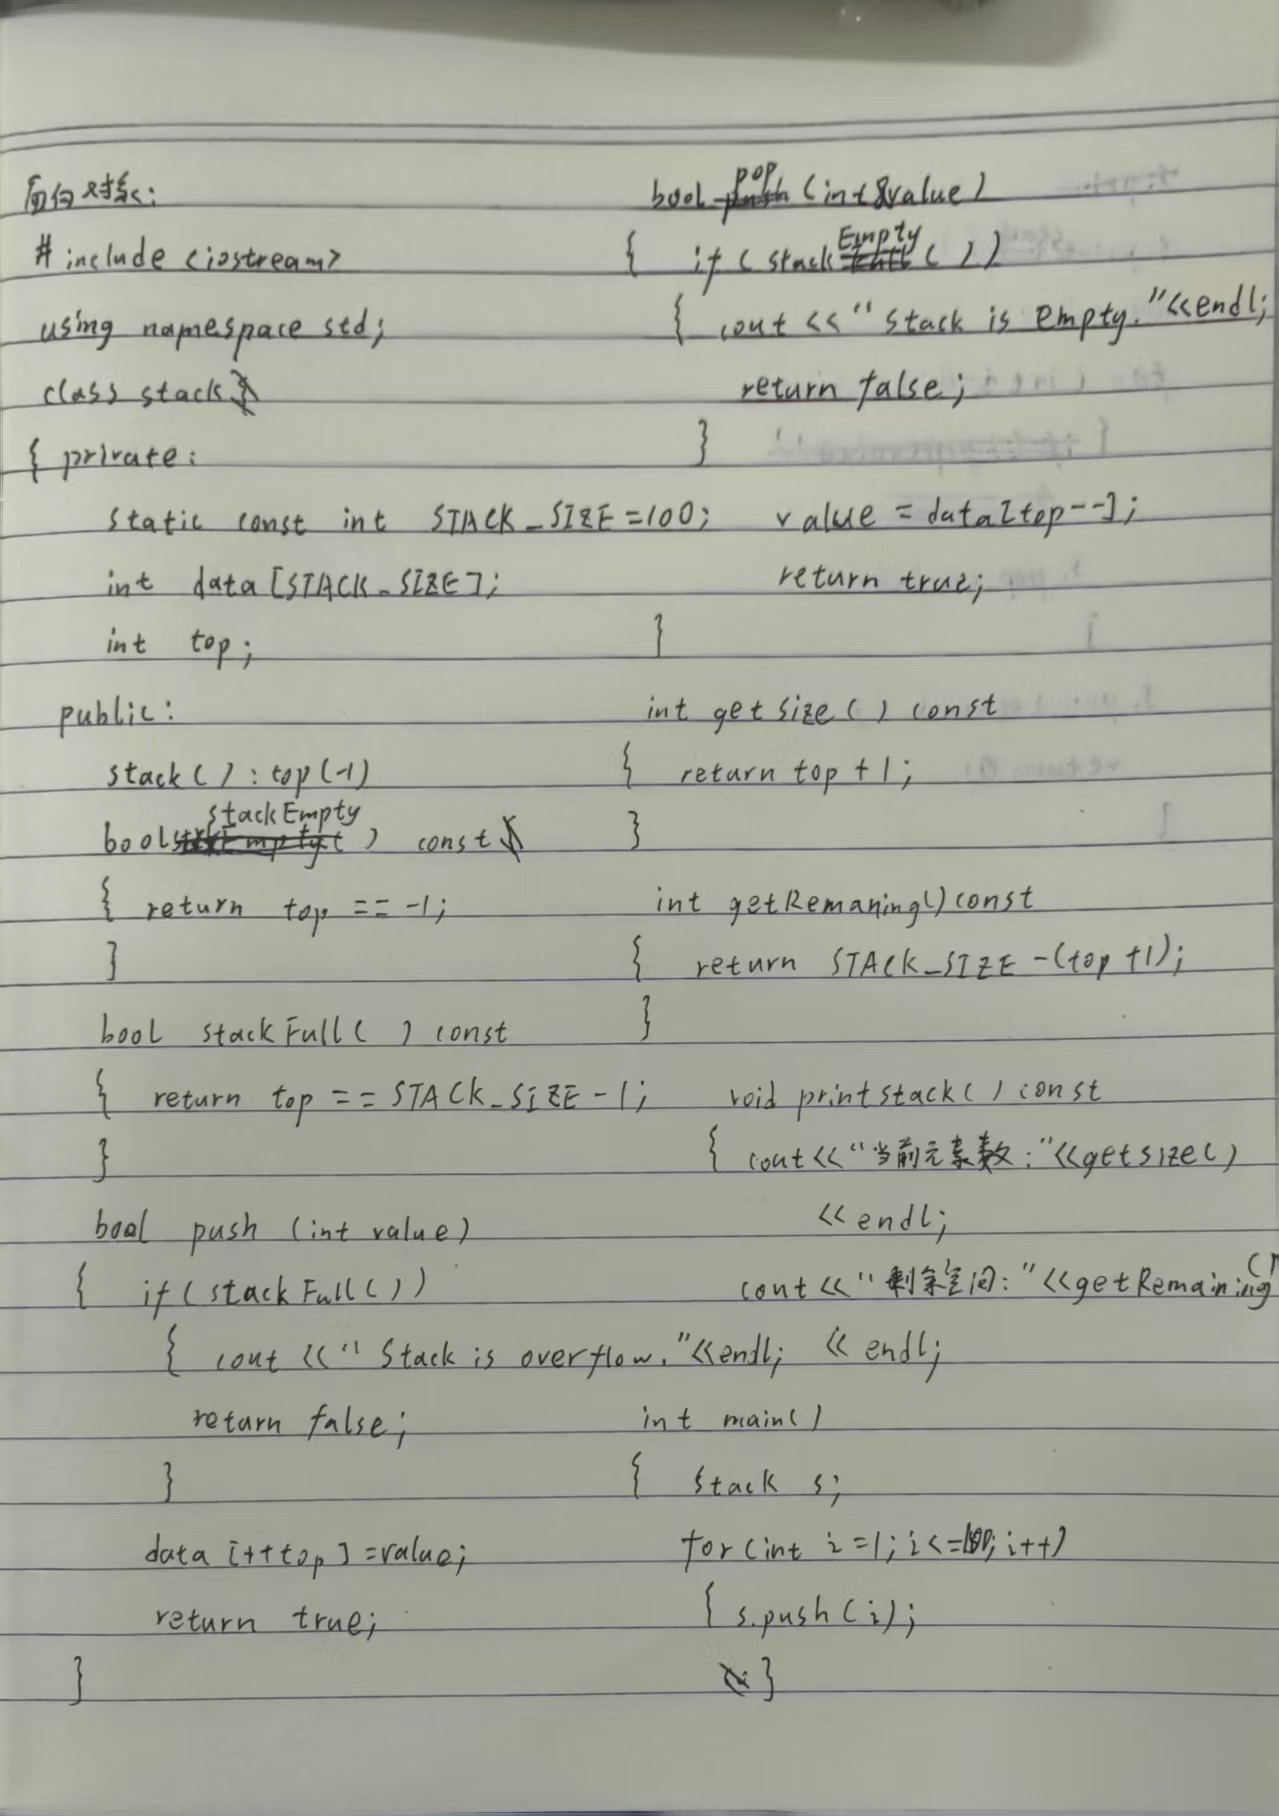 面向对象:
#include <iostream>
using namespace std;
class stack
{ private:
static const int STACK_SIZE=100;
int data[STACK_SIZE];
int top;
public:
stack():top(-1)
bool stackEmpty() const
{ return top == -1;
}
bool stackFull() const
{ return top == STACK_SIZE-1;
}
bool push (int value)
{ if(stackFull())
{ cout <<"Stack is overflow."<<endl;
return false;
}
data[++top]=value;
return true;
}
bool pop(int&value)
{ if(stackEmpty())
{ cout <<"Stack is empty."<<endl;
return false;
}
value=data[top--];
return true;
}
int getsize() const
{ return top+1;
}
int getRemaning()const
{ return STACK_SIZE-(top+1);
}
void printstack() const
{ cout<<"当前元素数:"<<getsize()
<<endl;
cout<<"剩余空间:"<<getRemaining()
<<endl;
int main()
{ stack s;
for(int i=1;i<=100;i++)
{ s.push(i);
}